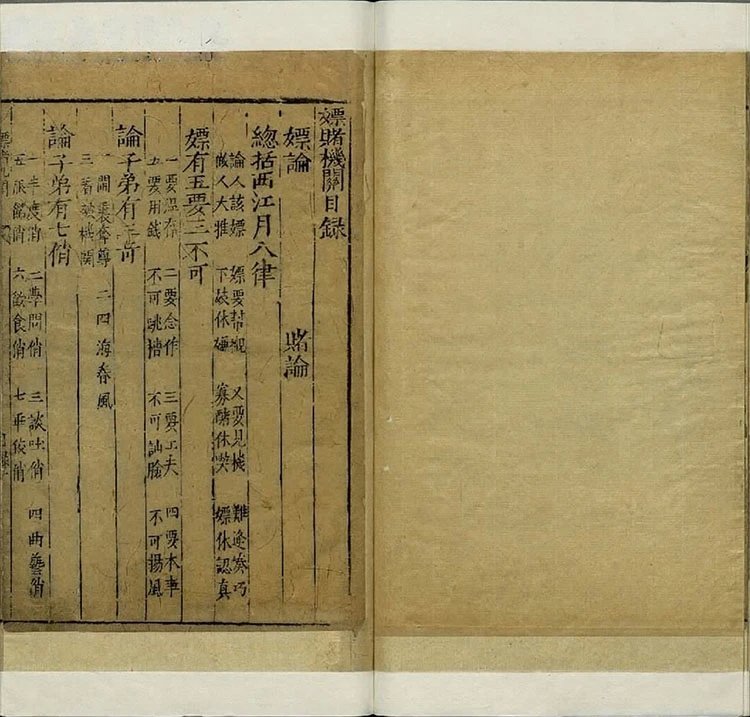 嫖賭機關目録
嫖論 賭論
總括西江月八律
論人該嫖 嫖要幇襯 又要見機 難逢湊巧
做人大雅 下妓休 寡醋休喫 嫖休認真
嫖有五要三不可
一要溫存 二要念作 三要工夫 四要本事
五要用錢 不可跳槽 不可訕臉 不可揚風
論子弟有三奇
一開 尊 二四海春風
三 機關
論子弟有七俏
一 度俏 二學問俏 三談吐俏 四曲藝俏
五服餙俏 六飲食俏 七 俏